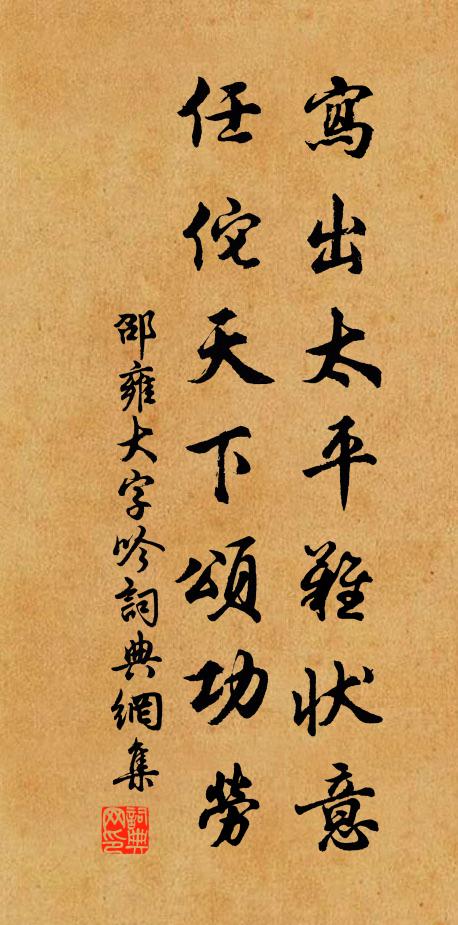 寫出太平難狀意
任佗天下頌功勞
邵雍大字吟詞典網集
詞典网印